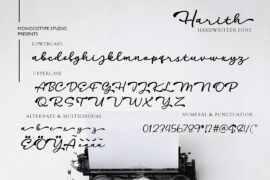 MONOCOTYPE STUDIO
PRESENTS
Harith
HANDWRITTEN FONT
LOWERCASE
abcdefghijklmnopqrstuvwxyz
UPPERCASE
ABCDEFGHIJKLMN
OPQRSTUVWXYZ
ALTERNATE & MULTILINGUAL
a b c x y z
ËÖŸÄ
NUMERAL & PUNCTUATION